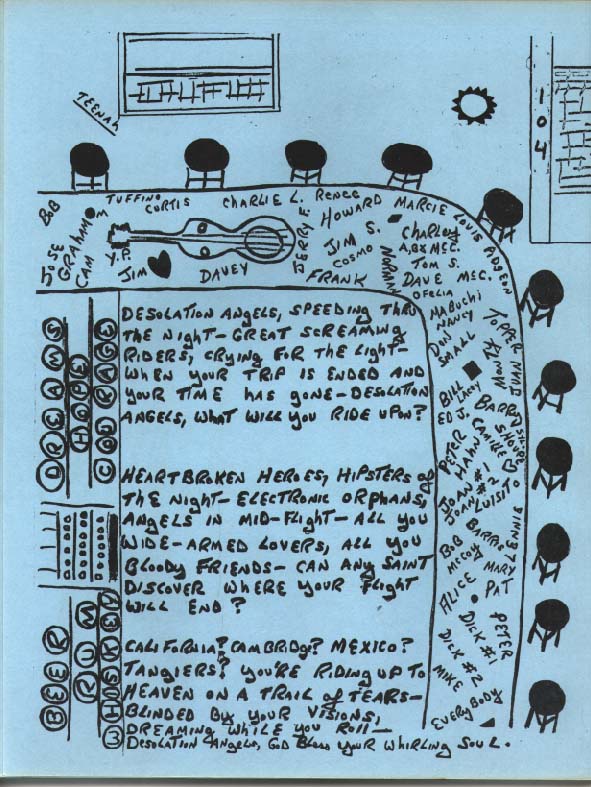 TEENAH
104
BOB
TUFFINO
CURTIS
CHARLIE L.
RENEE
HOWARD
MARCIE
LOUIS
RIDGEON
JOSE
GRAHAM
CAM
Y.P.
JIM
DAVEY
JERRY E
JIM S.
COSMO
FRANK
NORMAN
CHARLEY
A, B & McC.
TOM S.
DAVE McC.
OFELIA
MABUCHI
NANCY
DON
SMALL
TOPPER
JUAN
MONK
BILL
LACEY
ED J.
BARRY
CAMILLE
SHOUP
PETER
HAHN
JOAN #1
JOAN #2
LUISITO
BENNIE
BOB
McCOY
BARRIS
MARY
ALICE
PAT
DICK #1
PETER
DICK #2
MIKE
EVERYBODY
DREAMS
HOPE
COURAGE
BEER
RUM
WHISKEY
DESOLATION ANGELS, SPEEDING THRU
THE NIGHT— GREAT SCREAMING
RIDERS, CRYING FOR THE LIGHT—
WHEN YOUR TRIP IS ENDED AND
YOUR TIME HAS GONE— DESOLATION
ANGELS, WHAT WILL YOU RIDE UPON?
HEARTBROKEN HEROES, HIPSTERS OF
THE NIGHT— ELECTRONIC ORPHANS,
ANGELS IN MID-FLIGHT— ALL YOU
WIDE-ARMED LOVERS, ALL YOU
BLOODY FRIENDS— CAN ANY SAINT
DISCOVER WHERE YOUR FLIGHT
WILL END?
CALIFORNIA? CAMBRIDGE? MEXICO?
TANGIERS? YOU'RE RIDING UP TO
HEAVEN ON A TRAIL OF TEARS—
BLINDED BY YOUR VISIONS,
DREAMING WHILE YOU ROLL—
DESOLATION ANGELS, GOD BLESS YOUR WHIRLING SOUL.